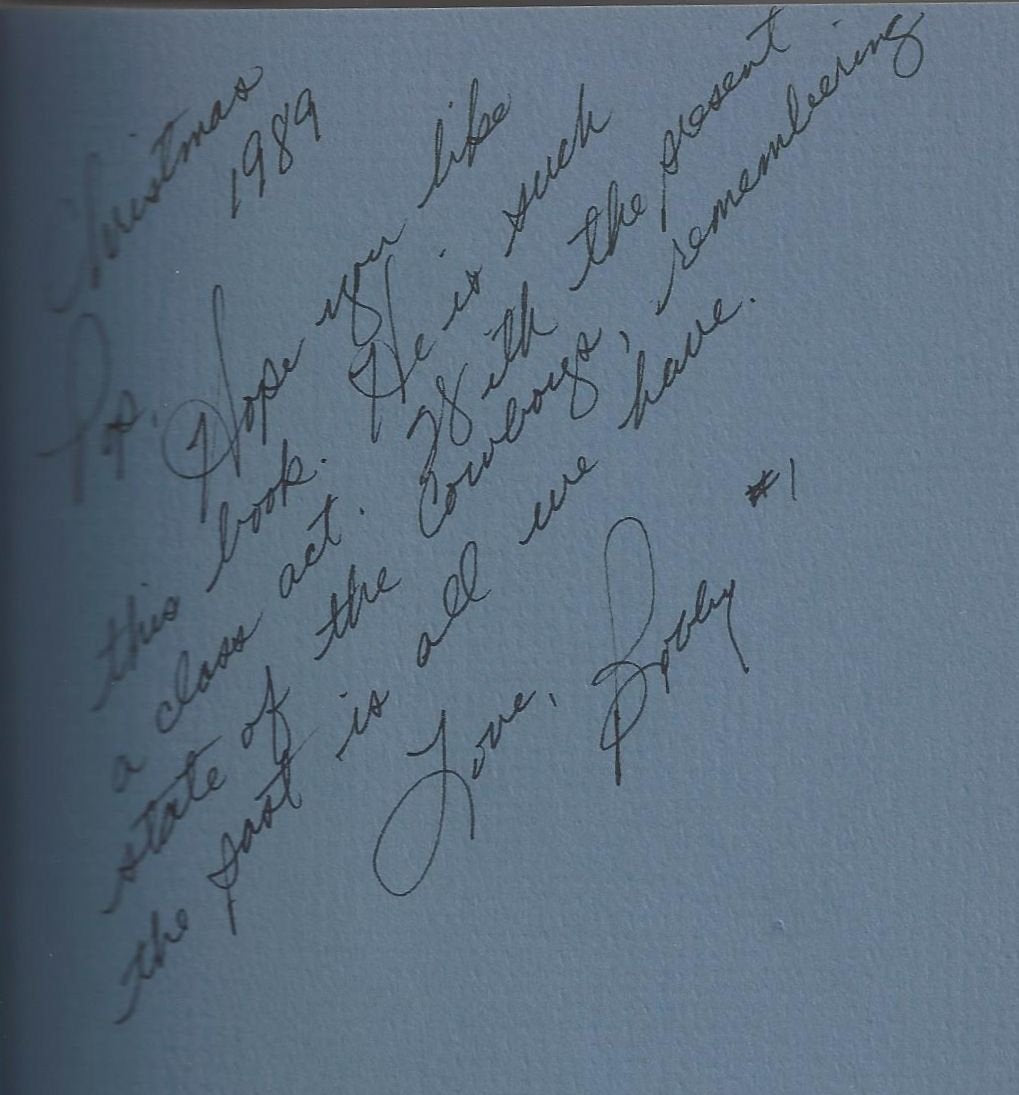 Christmas
1989
Pop. Hope you like
this book. He is such
a class act. With the present
state of the Cowboys, remembering
the past is all we have.
Love, Bobby #1